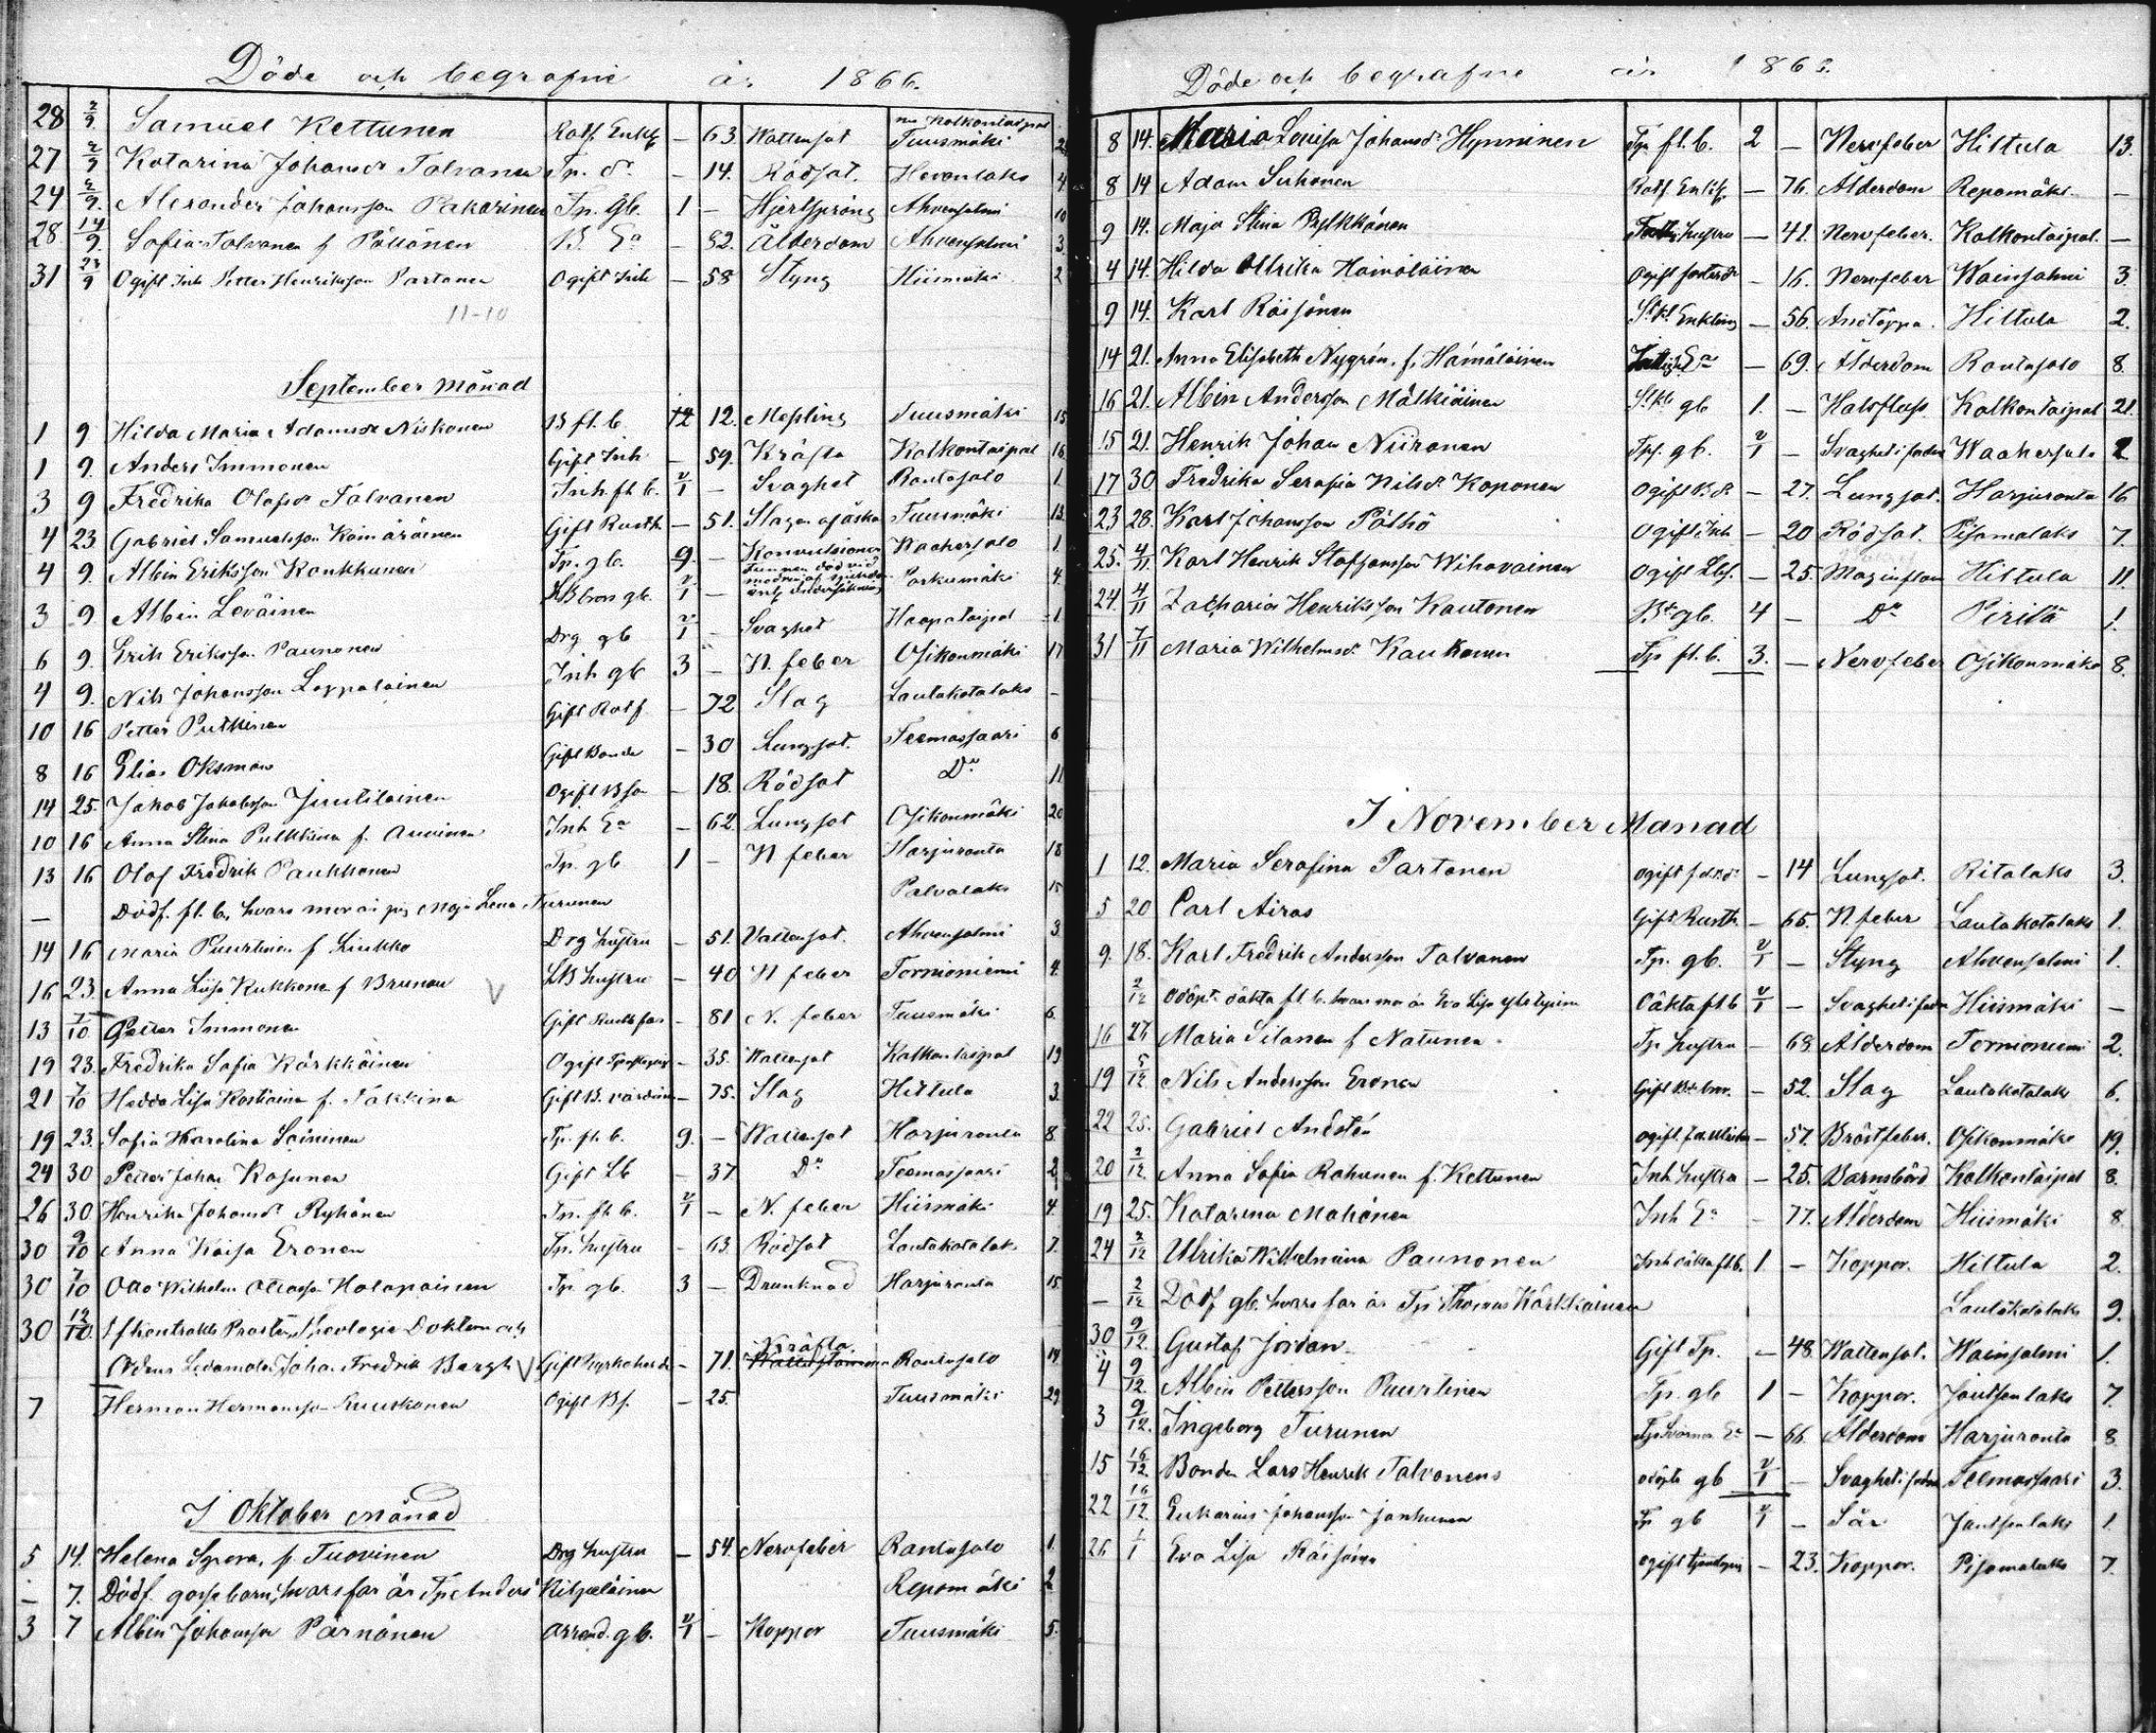 Döde och begrafne år 1866.
28 2/9. Samuel Kettunen Rotf. Enkl. – 63. Wattensot Kolkontaipal Tuusmäki
27 2/9 Katarina Johansdr Talvanen Tp. dr – 14. Rödsot. Hevonlaks 4
24 2/9. Alexander Johansson Pakarinen Tp. gb. 1 – Hjertspräng Ahvensalmi 10
28. 14/9. Sofia Talvanen f. Pöllänen B. Ea – 82. Ålderdom Ahvensalmi 3.
31 23/9 Ogift Inh Petter Henriksson Partanen Ogift Inh – 58 Styng Hiismäki 2
11-10
September Månad
1 9. Hilda Maria Adamsdr Niskanen B fl. b. 12. Mesling Tuusmäki 15
1 9. Anders Immonen Gift Inh – 59. Kräfta Kolkontaipal 16
3 9 Fredrika Olofsdr Talvanen Inh fl b. v/1 – Svaghet Rantasalo 1
4 23 Gabriel Samuelsson Gift Rusth. – 51. Slagen af åskan Tuusmäki 13.
4 9. Albin Eriksson Konkkunen Tp. gb. 9. – Konvulsioner Waahersalo 1.
3 9 Albin Leväinen gb. v/1 – Porkumäki 4.
6 9. Erik Eriksson Paunonen Drg gb v/1 – Svaghet Haapataipal 1
4 9. Nils Johansson Leppalainen Inh gb 3 – N. feber Osikonmäki 17
10 16 Petter Putkinen Gift Rotf – 72 Slag Lautakotalaks –
8 16 Elias Oksman Gift Bonde – 30 Lungsot. Teemassaari 6
14 25. Jakob Jakobsson Juutilainen Ogift Bson – 18. Rödsot Do 11
10 16 Anna Stina Pulkkinen f. Auvinen Inh Ea – 62. Lungsot Osikonmäki 20
13 16 Olof Fredrik Paukkonen Tp. gb 1 – N feber Harjuranta 18
– Dödf. fl. b., hvars mor är pig Maja Lena Turunen Palvalaks 15
14 16 Maria Puurtinen f Liukko Drg hustru – 51. Vattensot. Ahvensalmi 3.
16 23. Anna Lisa Kukkonen f Brunou V LB hustru – 40 N feber Tornioniemi 4.
13 7/10 Petter Immonen Gift – 81 N. feber Tuusmäki 6.
19 23. Fredrika Sofia Kärkkäinen Ogift – 35. Wattensot Kolkontaipal 19
21 7/10 Hedda Lisa f. Takkina Gift B. värdinna – 75. Slag Hiltula 3.
19 23. Sofia Karolina Soininen Tp. fl. b. 9. – Wattensot Harjuranta 8
24 30 Petter Johan Kosunen Gift Lb – 37 Do Teemassaari 2
26 30 Henrika Johansdr Rykönen Tp. fl. b. v/1 – N. feber Hiismäki 4.
30 9/10 Anna Kaisa Eronen Tp. hustru – 63. Rödsot Lautakotalaks 7.
30 7/10 Otto Wilhelm Ottosson Holopainen Tp. gb. 3 – Drunknad Harjuranta 15.
30 12/10. Kontrakts Prosten, Theologie Doktorn och
Ordens Ledamoten Johan Fredrik Bergh V Gift Kyrkoherde – 71. Kräfta Rantasalo 14
7 Herman Hermansson Ruuskonen Ogift Bs. – 25. Tuusmäki 29
I Oktober Månad
5 14. Helena Sgrova, f. Tuovinen Drg hustru – 54. Nervfeber Rantasalo 1.
– 7. Dödf. gossebarn, hvars far är Tp. Anders Kilpeläinen Repomäki 2
3 7 Albin Johansson Pärnänen arrend. gb. v/1 – Koppor Tuusmäki 5.
Döde och begrafne år 1866.
8 14. Maria Lovisa Johansdr Hynninen Tp. fl. b. 2 – Nervfeber Hiltula 13.
8 14 Adam Suhonen Rotf. Enkl. – 76. Ålderdom Repomäki –
9 14. Maja Stina Pylkkänen hustru – 41. Nervfeber. Kolkontaipal. –
4 14. Hilda Ullrika Hämäläinen Ogift – 16. Nervfeber Wainsalmi 3.
9 14. Karl Räisänen Enkling – 56. Andtäppa. Hiltula 2.
14 21. Anna Elisabeth Nygrén. f. Hämäläinen Ea – 69. Ålderdom Rantasalo 8
16 21. Albin Andersson Mälkiäinen gb 1. – Halsfluss Kolkontaipal 21.
15 21. Henrik Johan Niiranen Tp. gb. v/1 – Waahersalo 2
17 30. Fredrika Serafia Nilsdr Koponen Ogift B. dr – 27. Lungsot. Harjuranta 16
23 28. Karl Johansson Pölhö Ogift Inh – 20 Rödsot. Pisamalaks 7.
25. 4/11. Karl Henrik Staffansson Wihavainen Ogift Lbs. – 25. Maginflam Hiltula 11.
24. 4/11 Zacharias Henriksson Kautonen gb. 4 – Do Pirilä 1.
31 7/11 Maria Wilhelmsdr Kaukonen Tp fl. b. 3. – Nervfeber Osikonmäki 8.
I November Månad
1 12. Maria Serafina Partonen ogift – 14 Lungsot. Ritalaks 3.
5 20 Carl Airas Gift Rusth. – 65. N. feber Lautakotalaks 1.
9. 18. Karl Fredrik Andersson Talvanen Tp. gb. v/1 – Styng Ahvensalmi 1.
2/12 odöpt oäkta fl. b. hvars mor är Eva Lisa Oäkta fl b v/1 – Hiismäki –
16 26 Maria Silanen f Natunen Tp. hustru – 68 Ålderdom Tornioniemi 2.
19 5/12 Nils Andersson Eronen Gift – 52. Slag Lautakotalaks 6.
22 25. Gabriel Andstén ogift. – 57. Bröstfeber. Osikonmäki 19.
20 2/12. Anna Sofia Rahunen f. Kettunen Inh hustru – 25. Barnsbörd Kolkontaipal 8.
19 25. Katarina Makonen Inh Ea – 77. Ålderdom Hiismäki 8
24 2/12 Ulrika Wilhelmina Paunonen Inh oäkta fl b. 1. – Koppor. Hiltula 2.
– 2/12 Dödf. gb. hvars far är Tp. Thomas Kärkkäinen Lautakotalaks 9.
30 9/12. Gustaf Jordan Gift Tp. – 48. Wattensot. Wainsalmi 1.
4 9/12. Albin Pettersson Puurtinen Tp. gb 1 – Koppor. Jäntsenlaks 7.
3 9/12. Ingeborg Turunen Ea – 66. Ålderdom Harjuranta 8.
15 16/12. Bonden Lars Henrik Talvanens odöpte gb v/1 – Teemassaari 3.
22 16/12 Eukarius Johansson Janhunen Tp gb v/1 – Sår Jäntsenlaks 1
26 1/1 Eva Lisa Räisänen ogift – 23. Koppor. Pisamalaks 7.